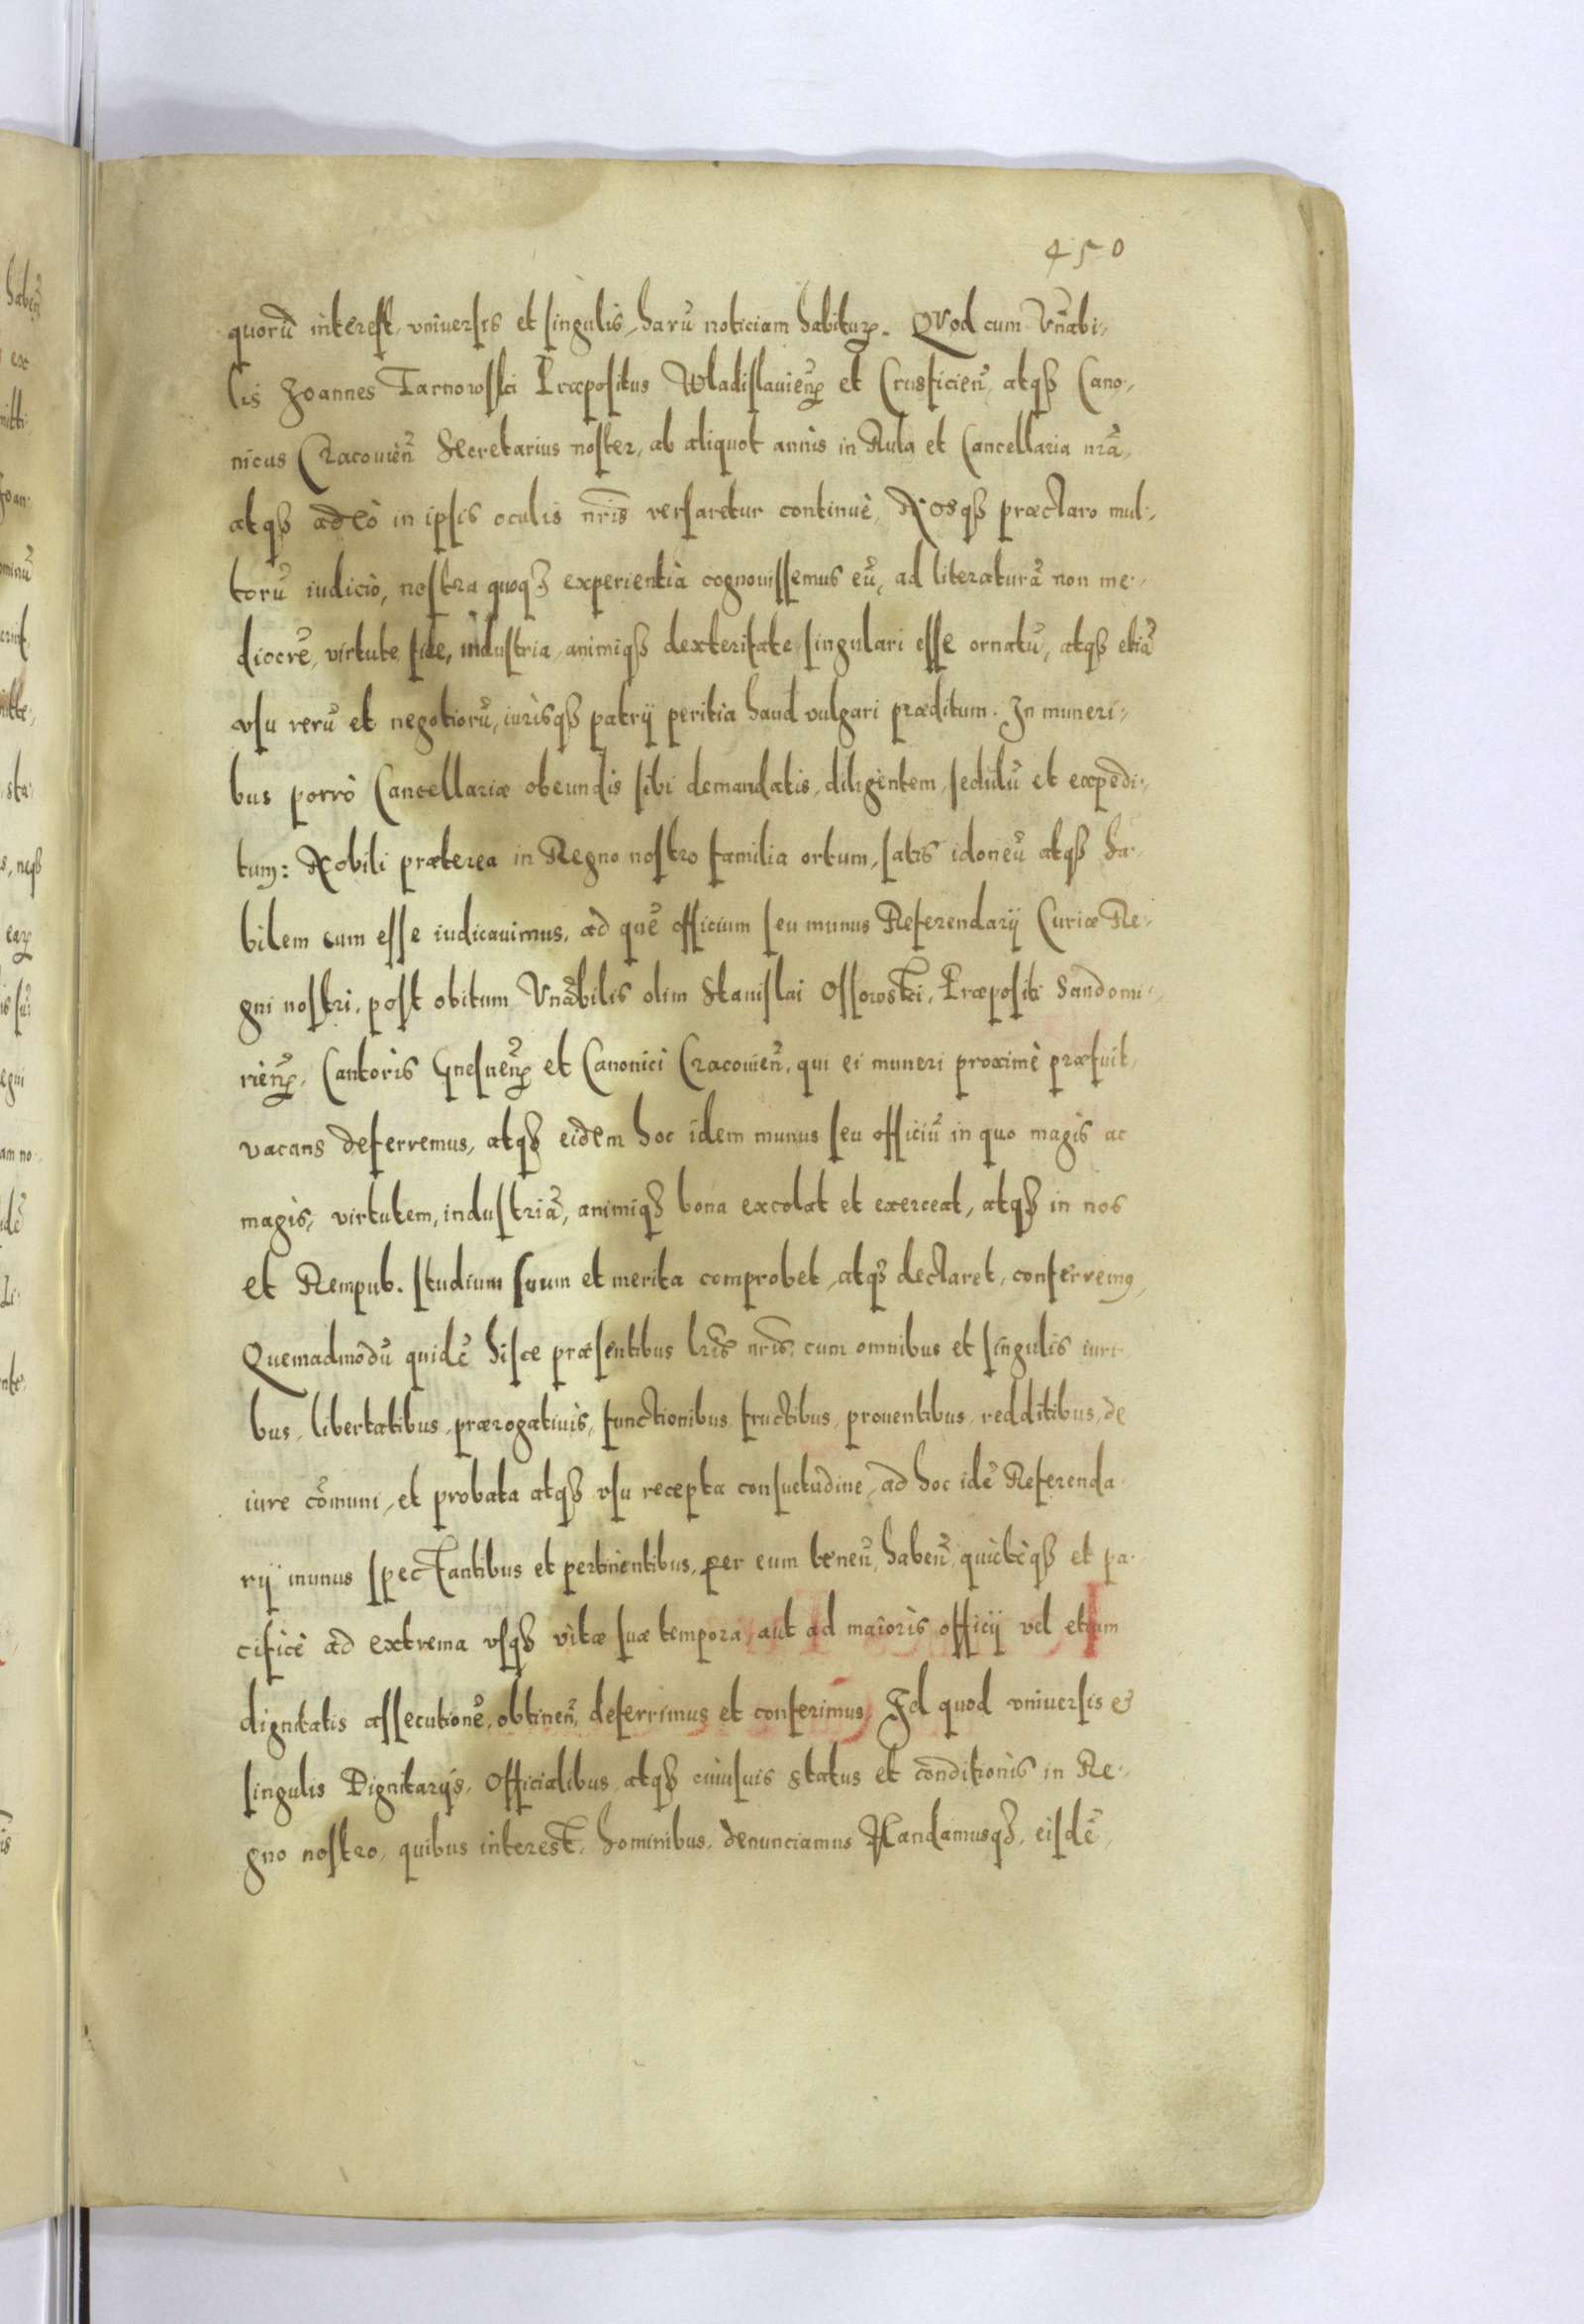 450
quorũ interest, vniuersis et singulis, harũ noticiam habituꝝ. Quod cum Vnãbi-
lis Joannes Tarnowski Præpositus Wladislauieñ et Crusficieñ, atqȝ Cano-
nicus Cracouieñ Secretarius noster, ab aliquot annis in Aula et Cancellaria nrã,
atqȝ adeò in ipsis oculis nr̃is versaretur continuè, Nosqȝ præclaro mul-
torũ iudicio, nostra quoqȝ experientia cognouissemus eũ, ad literaturã non me-
diocrẽ, virtute, fide, industria, animiqȝ dexteritate singulari esse ornatũ, atqȝ etiã
vsu rerũ et negotiorũ, iurisqȝ patrij peritia haud vulgari præditum. In muneri-
bus porrò Cancellariæ obeundis sibi demandatis, diligentem, sedulũ et expedi-
tum: Nobili præterea in Regno nostro familia ortum, satis idoneũ atqȝ ha-
bilem eum esse iudicauimus, ad quẽ officium seu munus Referendarij Curiæ Re-
gni nostri, post obitum Vnãbilis olim Stanislai Ossowski, Præpositi Sandomi-
rieñ, Cantoris Gnesneñ et Canonici Cracouieñ, qui ei muneri proximè præfuit,
vacans deferremus, atqȝ eidem hoc idem munus seu officiũ in quo magis ac
magis, virtutem, industriã, animiqȝ bona excolat et exerceat, atqȝ in nos
et Rempub. studium suum et merita comprobet, atqȝ declaret, conferremꝰ,
Quemadmodũ quidẽ hisce præsentibus lr̃is nr̃is, cum omnibus et singulis iuri-
bus, libertatibus, prærogatiuis, functionibus, fructibus, prouentibus, redditibus, de
iure cõmuni, et probata atqȝ vsu recepta consuetudine, ad hoc idẽ Referenda-
rij munus spectantibus et pertinentibus, per eum teneñ, habeñ, quietèqȝ et pa-
cificè ad extrema vsqȝ vitæ suæ tempora, aut ad maioris officij vel etiam
dignitatis assecutionẽ, obtineñ, deferrimus et conferimus, Id quod vniuersis et
singulis Dignitarijs, Officialibus, atqȝ cuiusuis status et conditionis in Re-
gno nostro, quibus interest, hominibus, denunciamus Mandamusqȝ, eisdẽ,